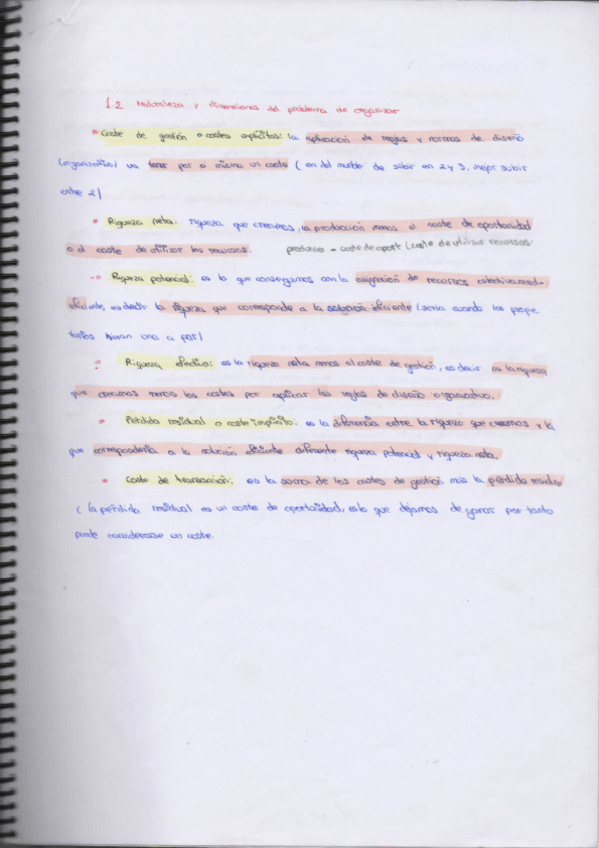 1.2 Naturaleza y dimensiones del problema de organizar
• Coste de gestión o costes explícitos: la aplicación de reglas y normas de diseño
(organizativo) va tener por si mismo un coste ( en del mueble de subir en 2 y 3, mejor subir
entre 2)
• Riqueza neta: riqueza que creamos, la producción menos el coste de oportunidad
o el coste de utilizar los recursos. producido - coste de oport (coste de utilizar recursos.
• Riqueza potencial: es lo que conseguimos con la asignación de recursos colectivamente
eficiente, es decir la riqueza que corresponde a la solución eficiente (sería cuando los prope
tarios una a por)
• Riqueza efectiva: es la riqueza neta menos el coste de gestión, es decir es la riqueza
que creamos menos los costes por aplicar las reglas de diseño organizativo.
• Pérdida residual o coste implícito: es la diferencia entre la riqueza que creamos y la
que correspondería a la solución eficiente diferente riqueza potencial y riqueza neta.
• Coste de transacción: es la suma de los costes de gestión más la pérdida residual
( la pérdida residual es un coste de oportunidad, es lo que dejamos de ganar por tanto
puede considerarse un coste.